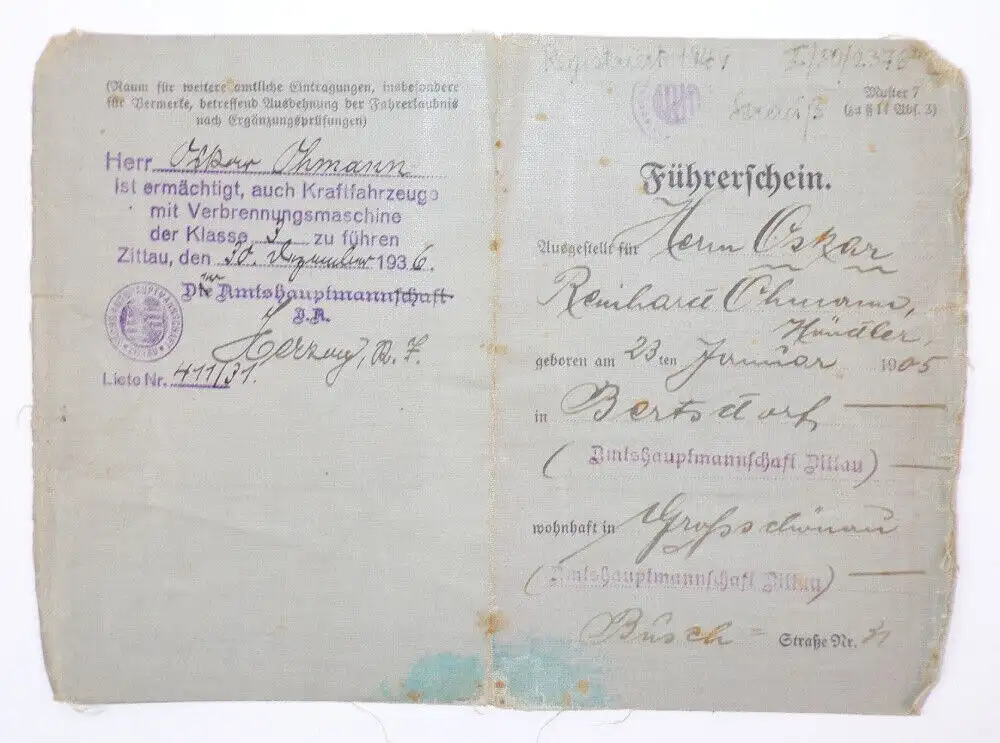 (Raum für weitere amtliche Eintragungen, insbesondere
für Vermerke, betreffend Ausdehnung der Fahrerlaubnis
nach Ergänzungsprüfungen)
Herr Oskar Ohmann
ist ermächtigt, auch Kraftfahrzeuge
mit Verbrennungsmaschine
der Klasse 3 zu führen
Zittau, den 30. Dezember 1936.
Der Amtshauptmannschaft
I.A.
Herzog, R. I.
Liste Nr. 411/31.
Registriert 1947
Muster 7
(zu § 14 Abs. 3)
Führerschein.
Ausgestellt für Herrn Oskar
Reinhard Ohmann,
Händler,
geboren am 23ten Januar 1905
in Bertsdorf
(Amtshauptmannschaft Zittau)
wohnhaft in Großschönau
(Amtshauptmannschaft Zittau)
Busch = Straße Nr.